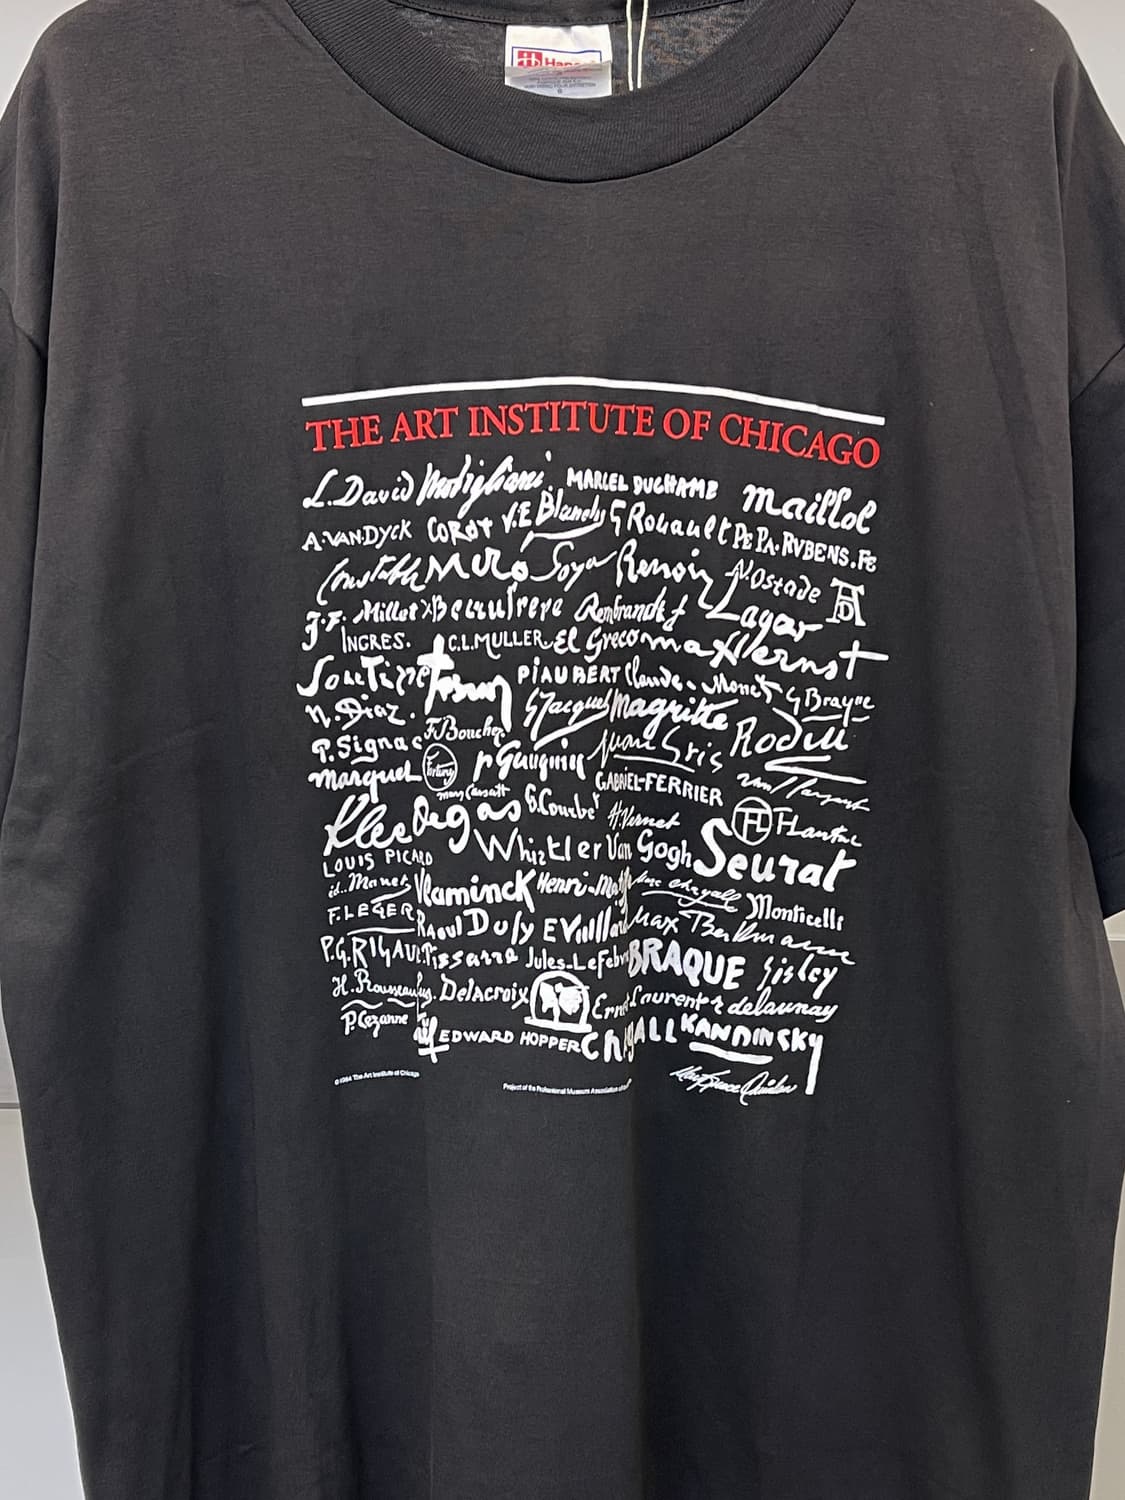 THE ART INSTITUTE OF CHICAGO
L. David Modigliani. MARCEL DUCHAMP maillol
A. VAN DYCK COROT V.E Blanch G Rouault PE PA. RVBENS. FE
Constable Miró Goya Renoir A. Ostade AD
J. F. Millet Beaufrere Rembrandt f Lagar
INGRES. C.L. MULLER El Greco max Ernst
Soutine PIAUBERT Claude Monet G Braque
N. Diaz. G Jacquet Magritte Rodin
P. Signac F. Boucher Juan Gris
marquet Fortuny P Gauguin GABRIEL-FERRIER
mary Cassatt
Klee Degas G. Courbet H. Vernet FL F. Lantin
LOUIS PICARD Whistler Van Gogh Seurat
éd. Manet Vlaminck Henri-Mat marc chagall Monticelli
F. LEGER Raoul Dufy E Vuillard Max Beckmann
P.G. RIGAUD Pissarro Jules. Lefebv BRAQUE Sisley
H. Rousseau Eug. Delacroix Ernst Laurent r delaunay
P. Cezanne EDWARD HOPPER ChagALL KANDINSKY
© 1984 The Art Institute of Chicago
Project of the Professional Museum Association of